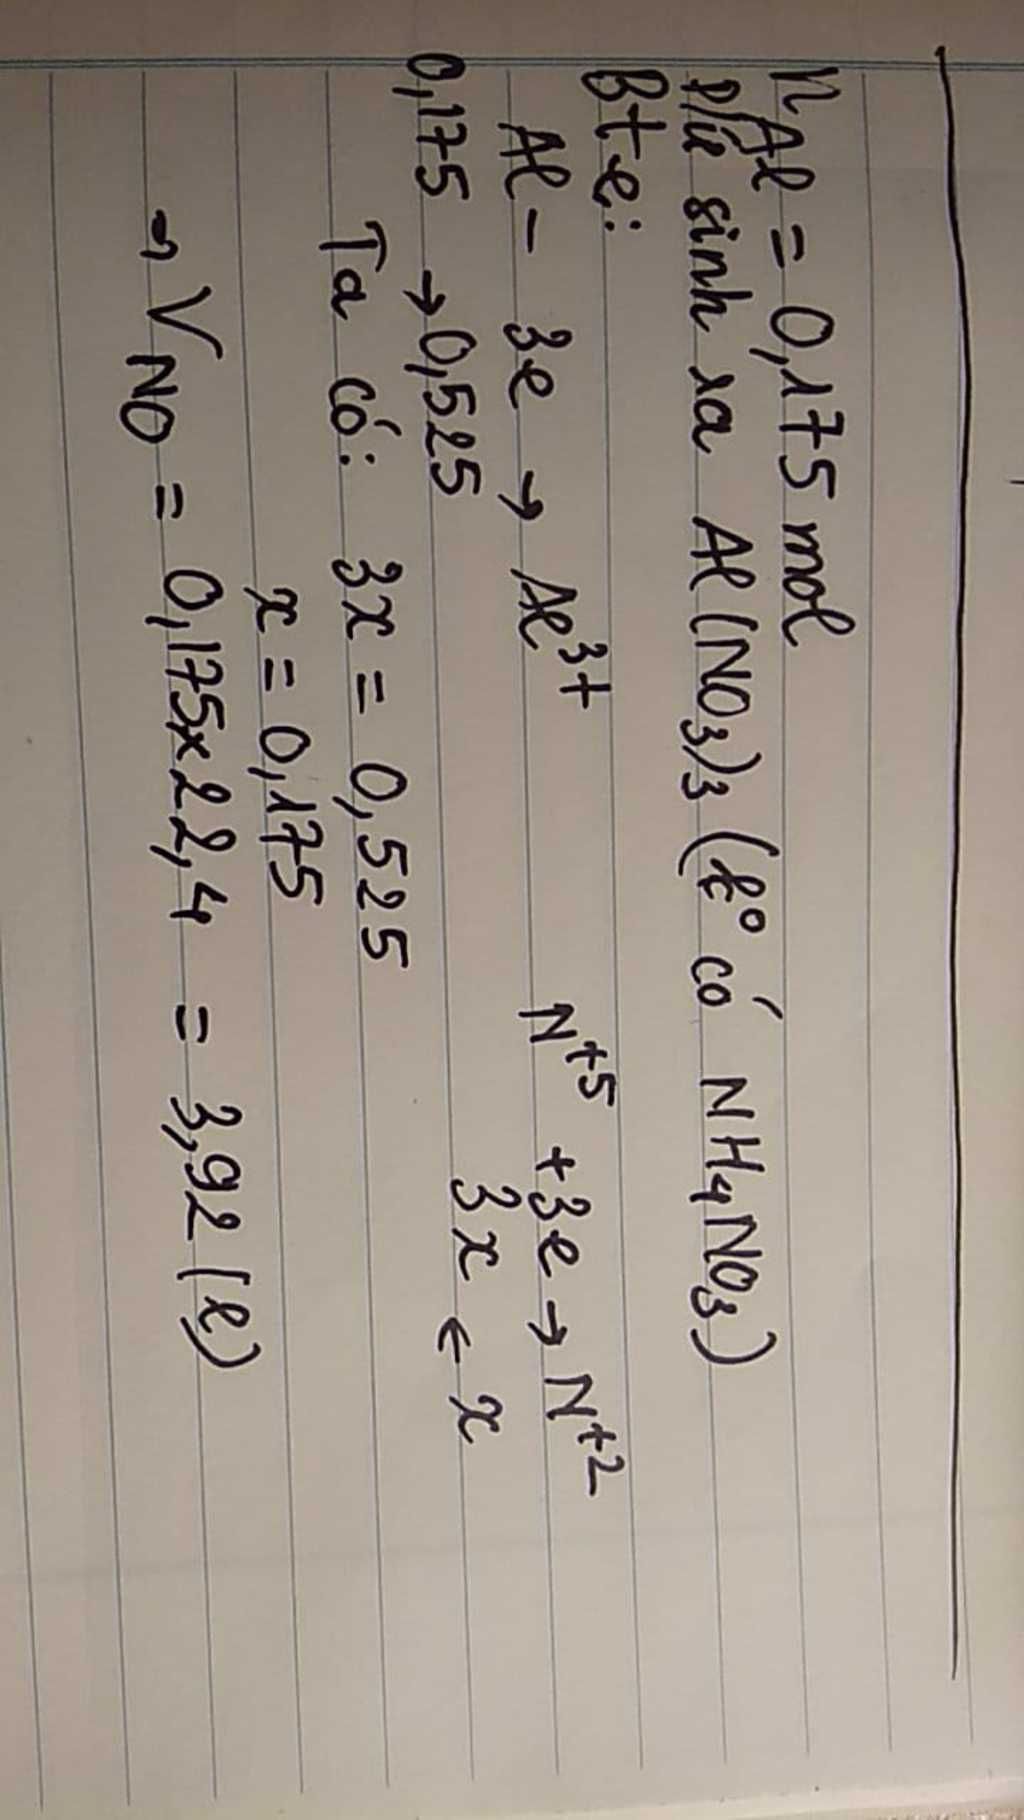 nAl = 0,175 mol
P/ứ sinh ra Al(NO3)3 (ko có NH4NO3)
Bte:
Al - 3e → Al3+ N+5 +3e → N+2
0,175 → 0,525 3x ← x
Ta có: 3x = 0,525
x = 0,175
→ VNO = 0,175x22,4 = 3,92 (l)